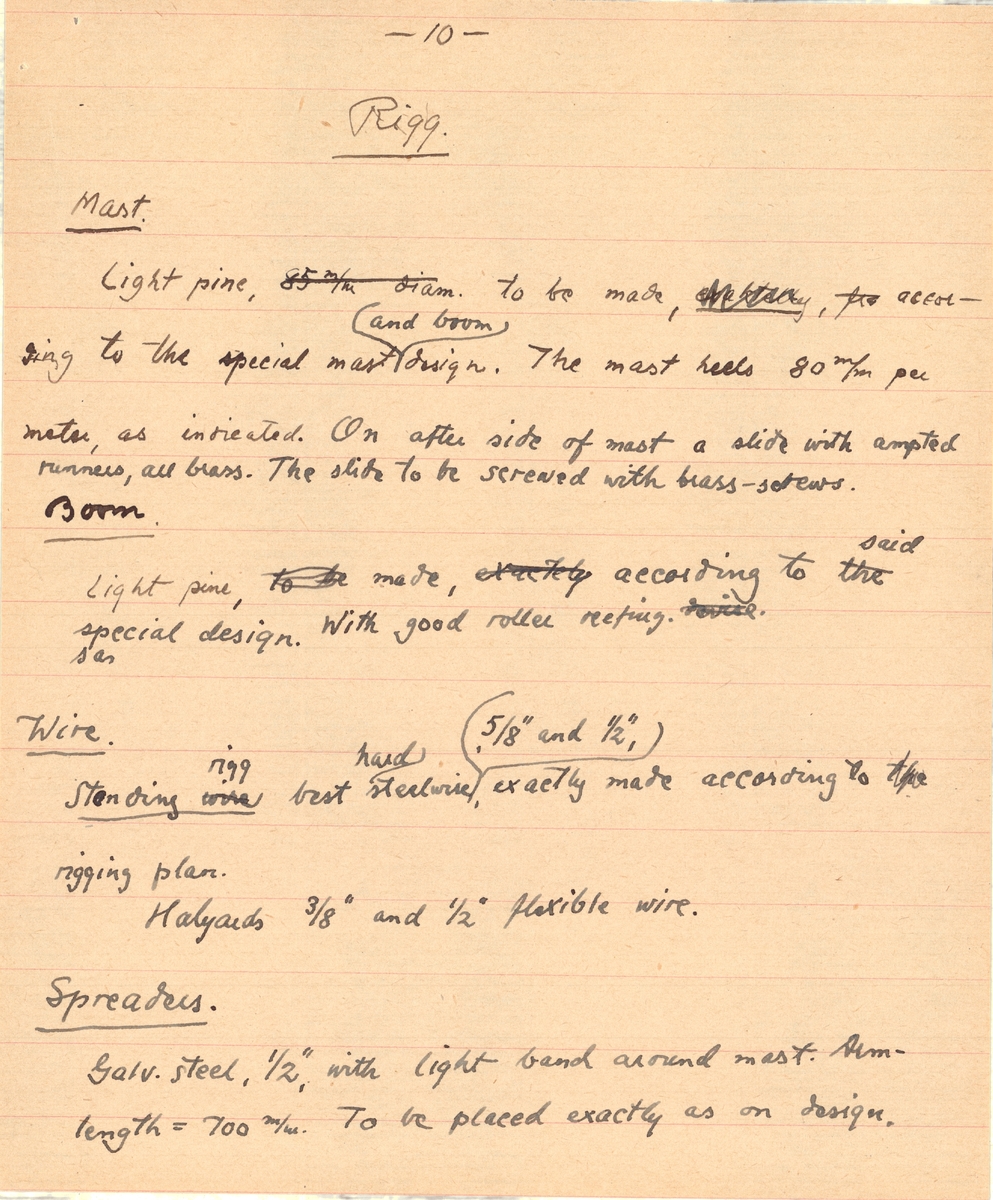 — 10 —
Rigg.
Mast.
Light pine, 85 m/m diam. to be made, exactely, according
(and boom)
ding to the special mast design. The mast heels 80 m/m per
meter, as indicated. On after side of mast a slide with ampted
runners, all brass. The slide to be screwed with brass-screws.
Boom.
said
Light pine, to be made, exactely according to the
special design. With good roller reefing. devise.
sas
Wire.
rigg hard (5/8" and 1/2",)
Standing wire best steelwire, exactly made according to the
rigging plan.
Halyards 3/8" and 1/2" flexible wire.
Spreaders.
Galv. steel, 1/2", with light band around mast. Arm-
length = 700 m/m. To be placed exactly as on design.